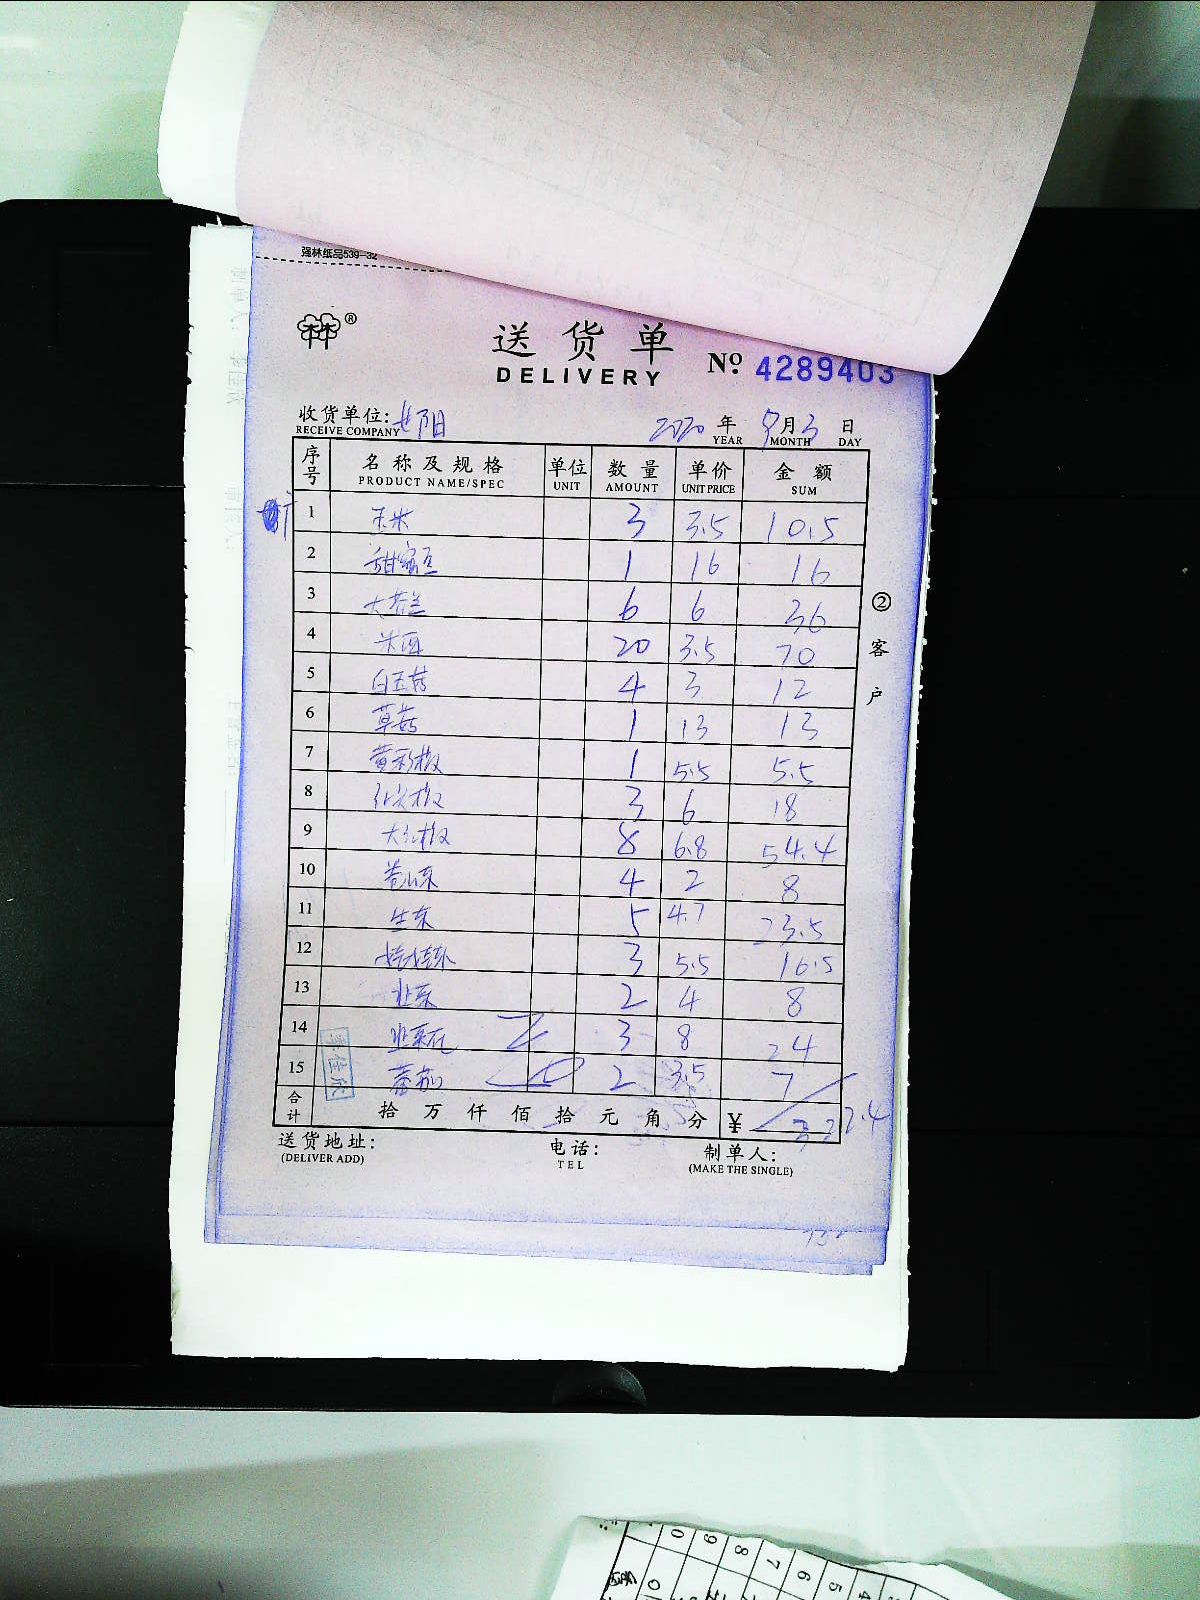 强林纸品539-32
林林®
送货单
DELIVERY
Nº 4289403
收货单位:
RECEIVE COMPANY
2020 年 9月3 日
YEAR MONTH DAY
序号 名称及规格 单位 数量 单价 金额
PRODUCT NAME/SPEC UNIT AMOUNT UNIT PRICE SUM
1 玉米 3 3.5 10.5
2 甜蜜豆 1 16 16
3 大芥兰 6 6 36
4 20 3.5 70
5 白玉菇 4 3 12
6 草菇 1 13 13
7 黄彩椒 1 5.5 5.5
8 红尖椒 3 6 18
9 大红椒 8 6.8 54.4
10 4 2 8
11 生菜 5 4.7 23.5
12 娃娃菜 3 5.5 16.5
13 韭菜 2 4 8
14 韭菜花 3 8 24
15 蕃茄 2 3.5 7
合计 拾 万 仟 佰 拾 元 角 分 ¥ 322.4
送货地址: 电话: 制单人:
(DELIVER ADD) TEL (MAKE THE SINGLE)
②客户
李佳欣